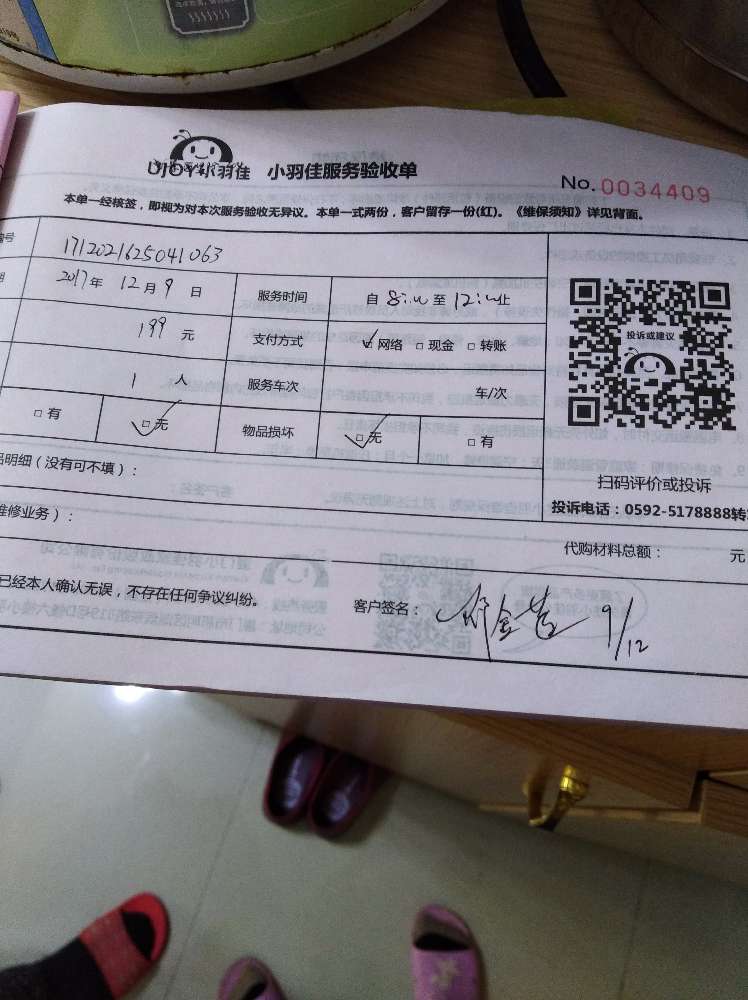 UJOY小羽佳 小羽佳服务验收单
No.0034409
本单一经核签，即视为对本次服务验收无异议。本单一式两份，客户留存一份(红)。《维保须知》详见背面。
编号 1712021625041063
期 2017年 12月 9 日 服务时间 自 8:00 至 12:00止
199 元 支付方式 ☑网络 □现金 □转账
1 人 服务车次 车/次
□有 ☑无 物品损坏 ☑无 □有
投诉或建议
扫码评价或投诉
投诉电话：0592-5178888转
品明细（没有可不填）：
维修业务）：
代购材料总额： 元
已经本人确认无误，不存在任何争议纠纷。 客户签名： 9/12